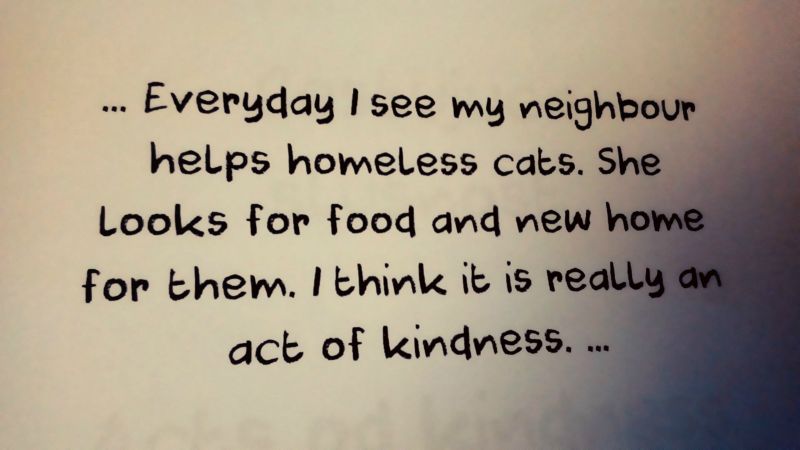 ... Everyday I see my neighbour
helps homeless cats. She
looks for food and new home
for them. I think it is really an
act of kindness. ...